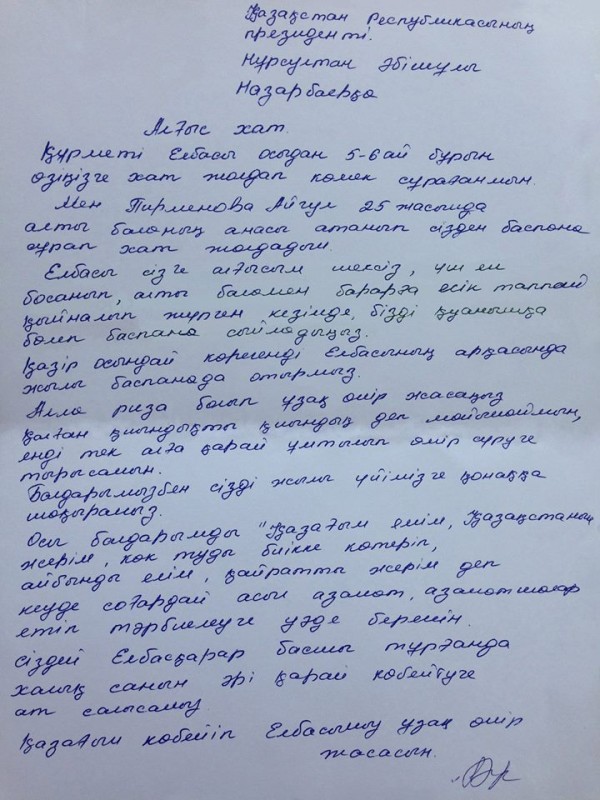 Қазақстан Республикасының
президенті.
Нұрсұлтан Әбішұлы
Назарбаевқа
Алғыс хат.
Құрметі Елбасы осыдан 5-6 ай бұрын
өзіңізге хат жолдап көмек сұрағанмын.
Мен Пирменова Айгүл 25 жасымда
алты баланың анасы атанып сізден баспана
сұрап хат жолдадым.
Елбасы сізге алғысым шексіз, үш ем
босанып, алты баламен барарға есік таппай
қыйналып жүрген кезімде, бізді қуанышқа
бөлеп баспана сыйладыңыз.
Қазір осындай көрегенді Елбасының арқасында
жылы баспанада отырмыз.
Алла риза болып ұзақ өмір жасаңыз
қалған қиындықты қиындық деп мойымаймын,
енді тек алға қарай ұмтылып өмір сүруге
тырысамын.
Балдарымызбен сізді жылы үйімізге қонаққа
шақырамыз.
Осы балдарымды "Қазағым елім, Қазақстаным
жерім, көк туды биікке көтеріп,
айбынды елім, қайратты жерім деп
кеуде соғардай асыл азамат, азаматшалар
етіп тәрбиелеуге уәде беремін.
Сіздей Елбасқарар басшы тұрғанда
халық санын әрі қарай көбейтуге
ат салысамыз
Қазағым көбейіп Елбасымыз ұзақ өмір
жасасын.